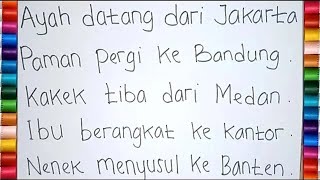 Ayah datang dari Jakarta
Paman pergi ke Bandung.
Kakek tiba dari Medan.
Ibu berangkat ke kantor.
Nenek menyusul ke Banten.